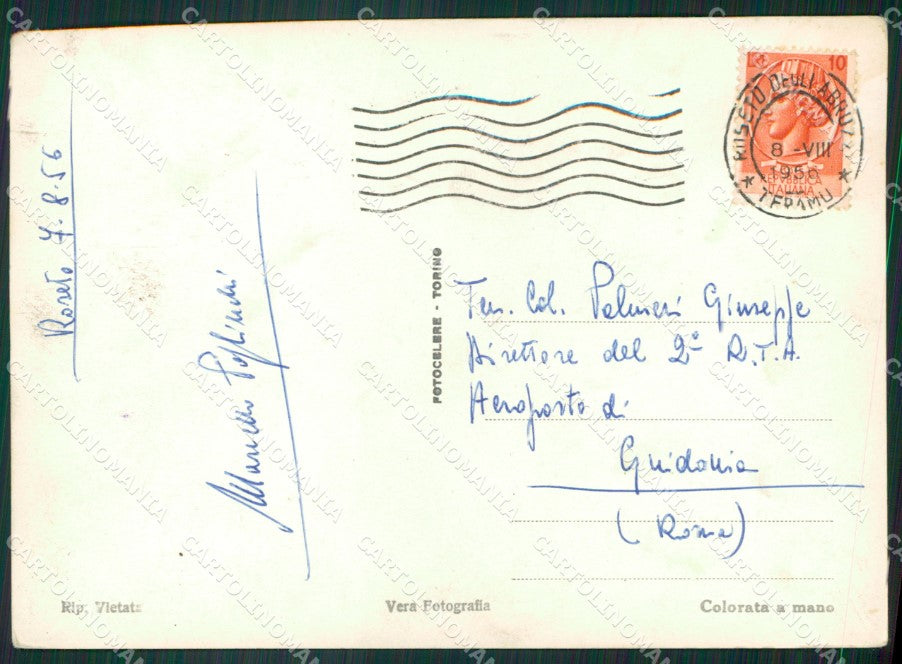 Roseto 7-8-56
Marcello
FOTOCELERE - TORINO
L. 10
REPUBBLICA
ITALIANA
ROSETO DEGLI ABRUZZI
8 -VIII
1956
* TERAMO *
Ten. Col. Palmeri Giuseppe
Direttore del 2º R.T.A.
Aeroporto di
Guidonia
(Roma)
Rip. Vietata
Vera Fotografia
Colorata a mano
CARTOLINOMANIA